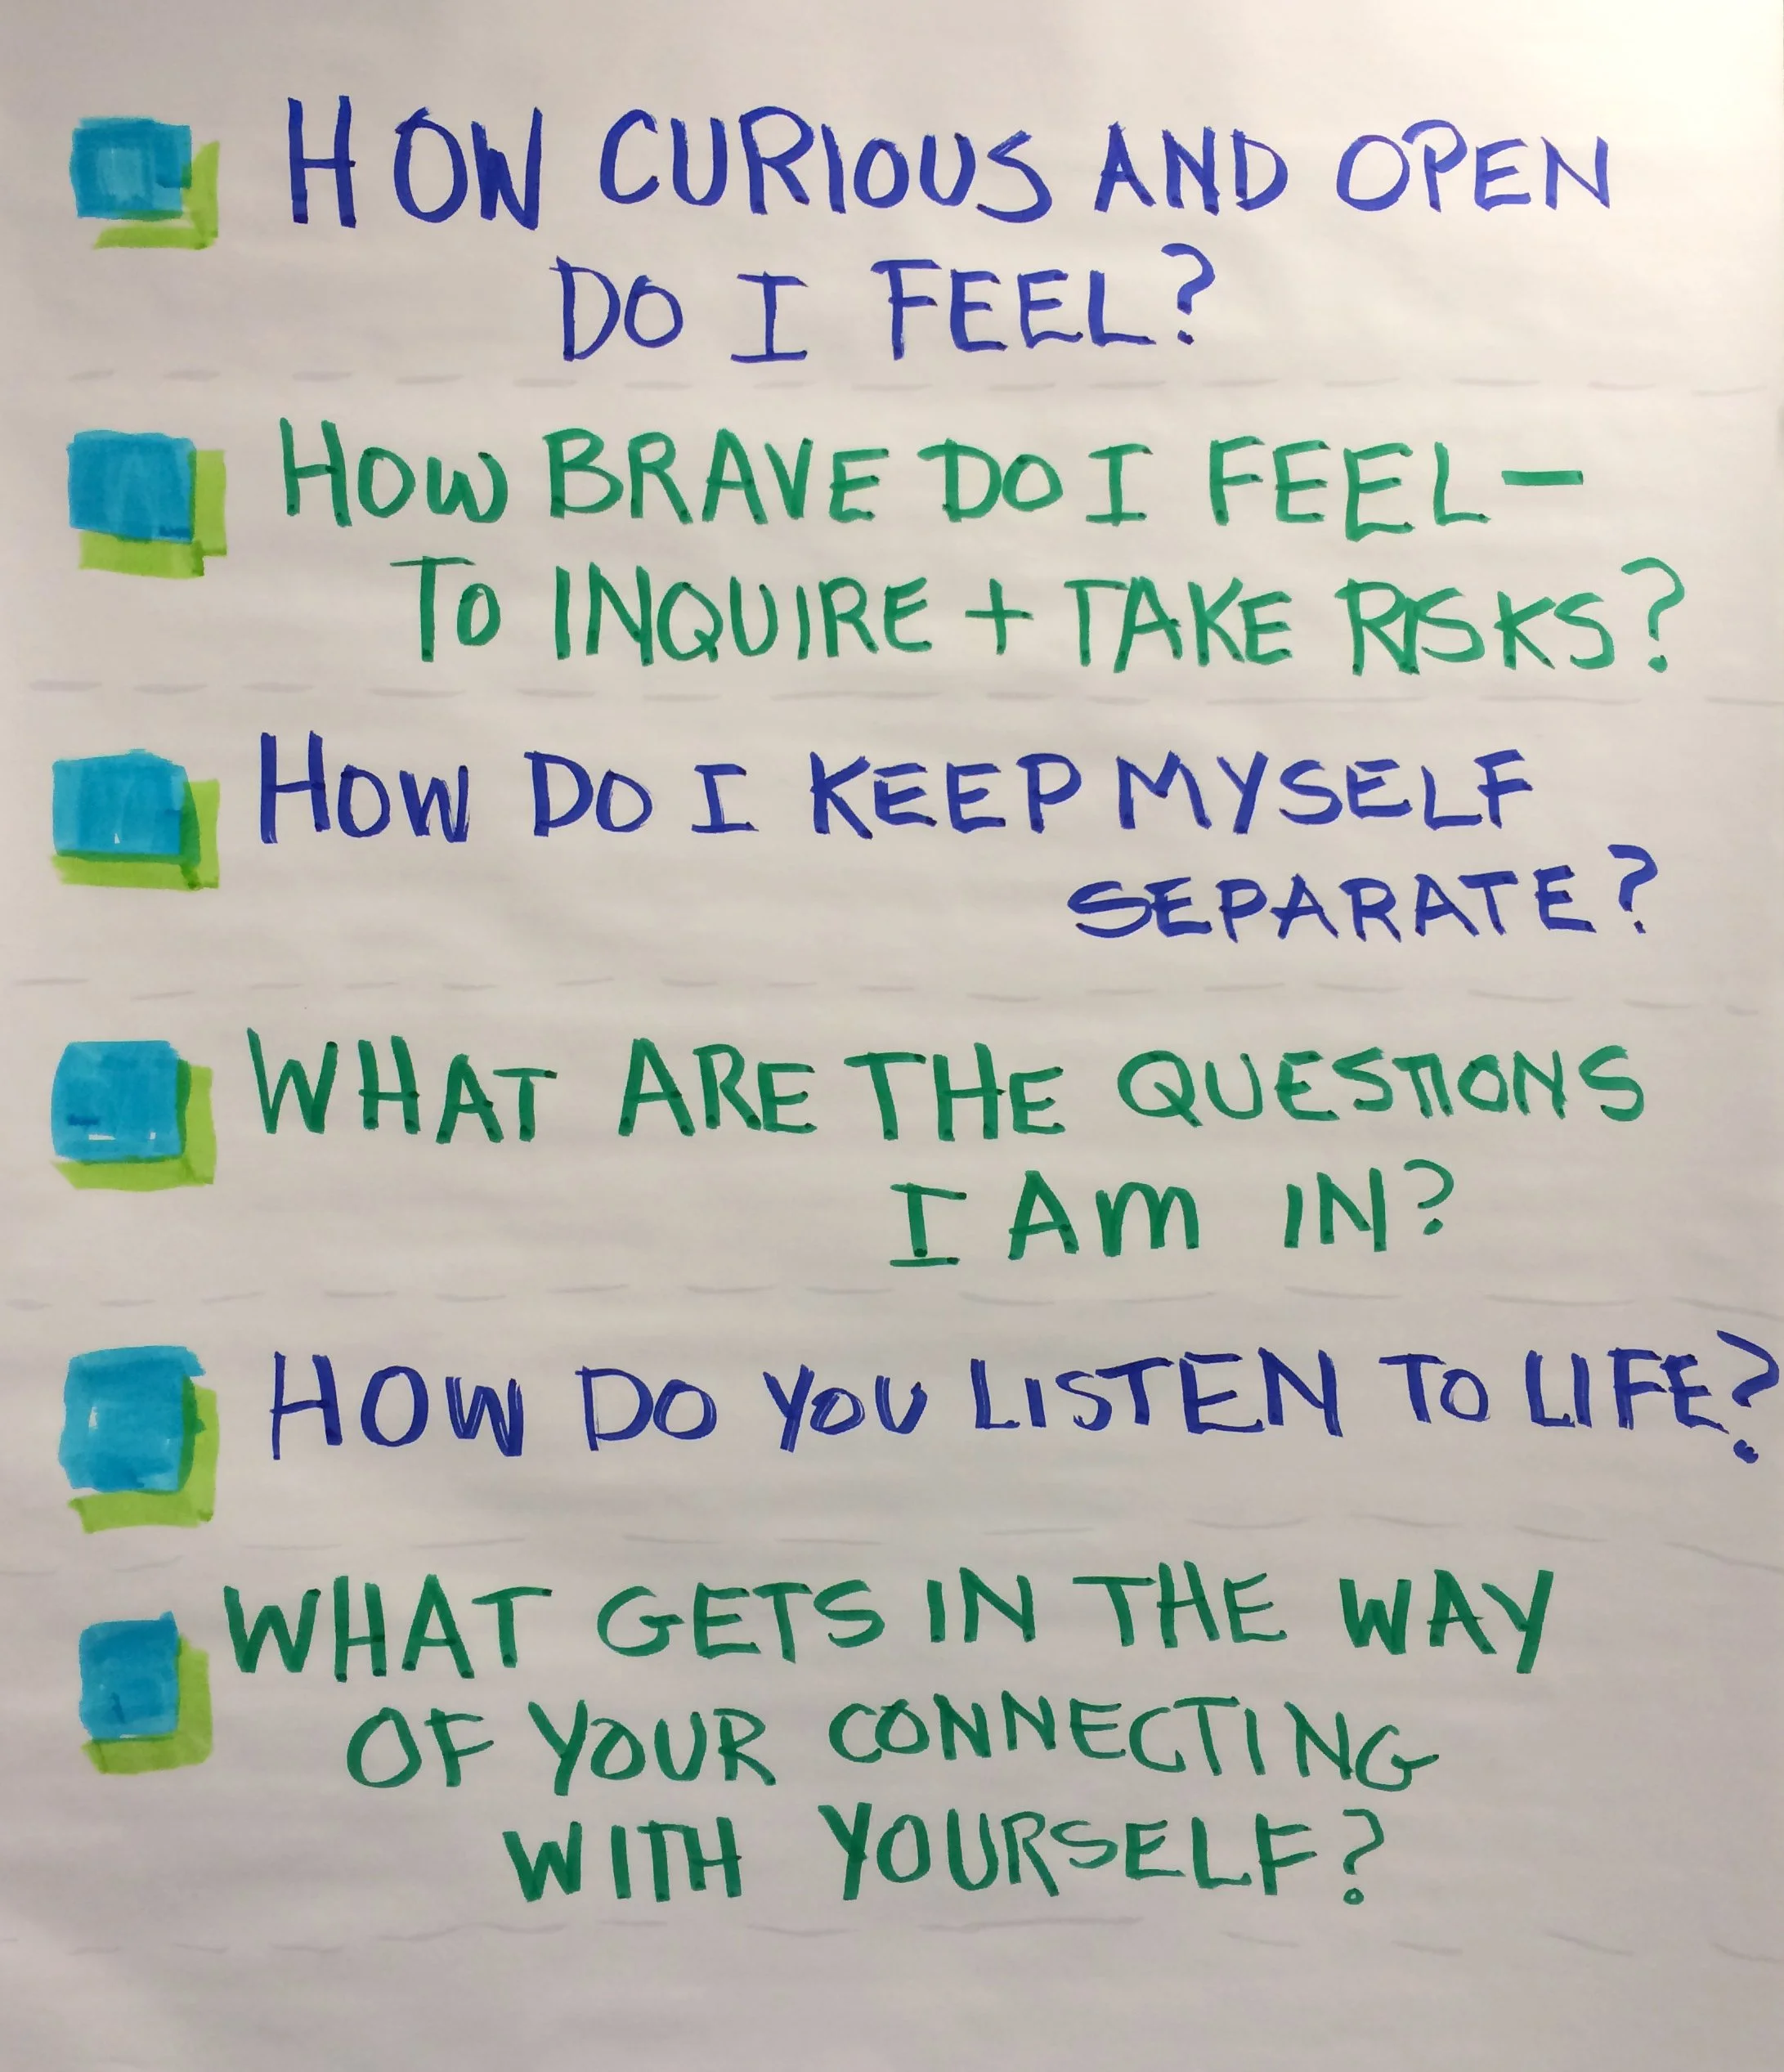 HOW CURIOUS AND OPEN
DO I FEEL?
HOW BRAVE DO I FEEL—
TO INQUIRE + TAKE RISKS?
HOW DO I KEEP MYSELF
SEPARATE?
WHAT ARE THE QUESTIONS
I AM IN?
HOW DO YOU LISTEN TO LIFE?
WHAT GETS IN THE WAY
OF YOUR CONNECTING
WITH YOURSELF?